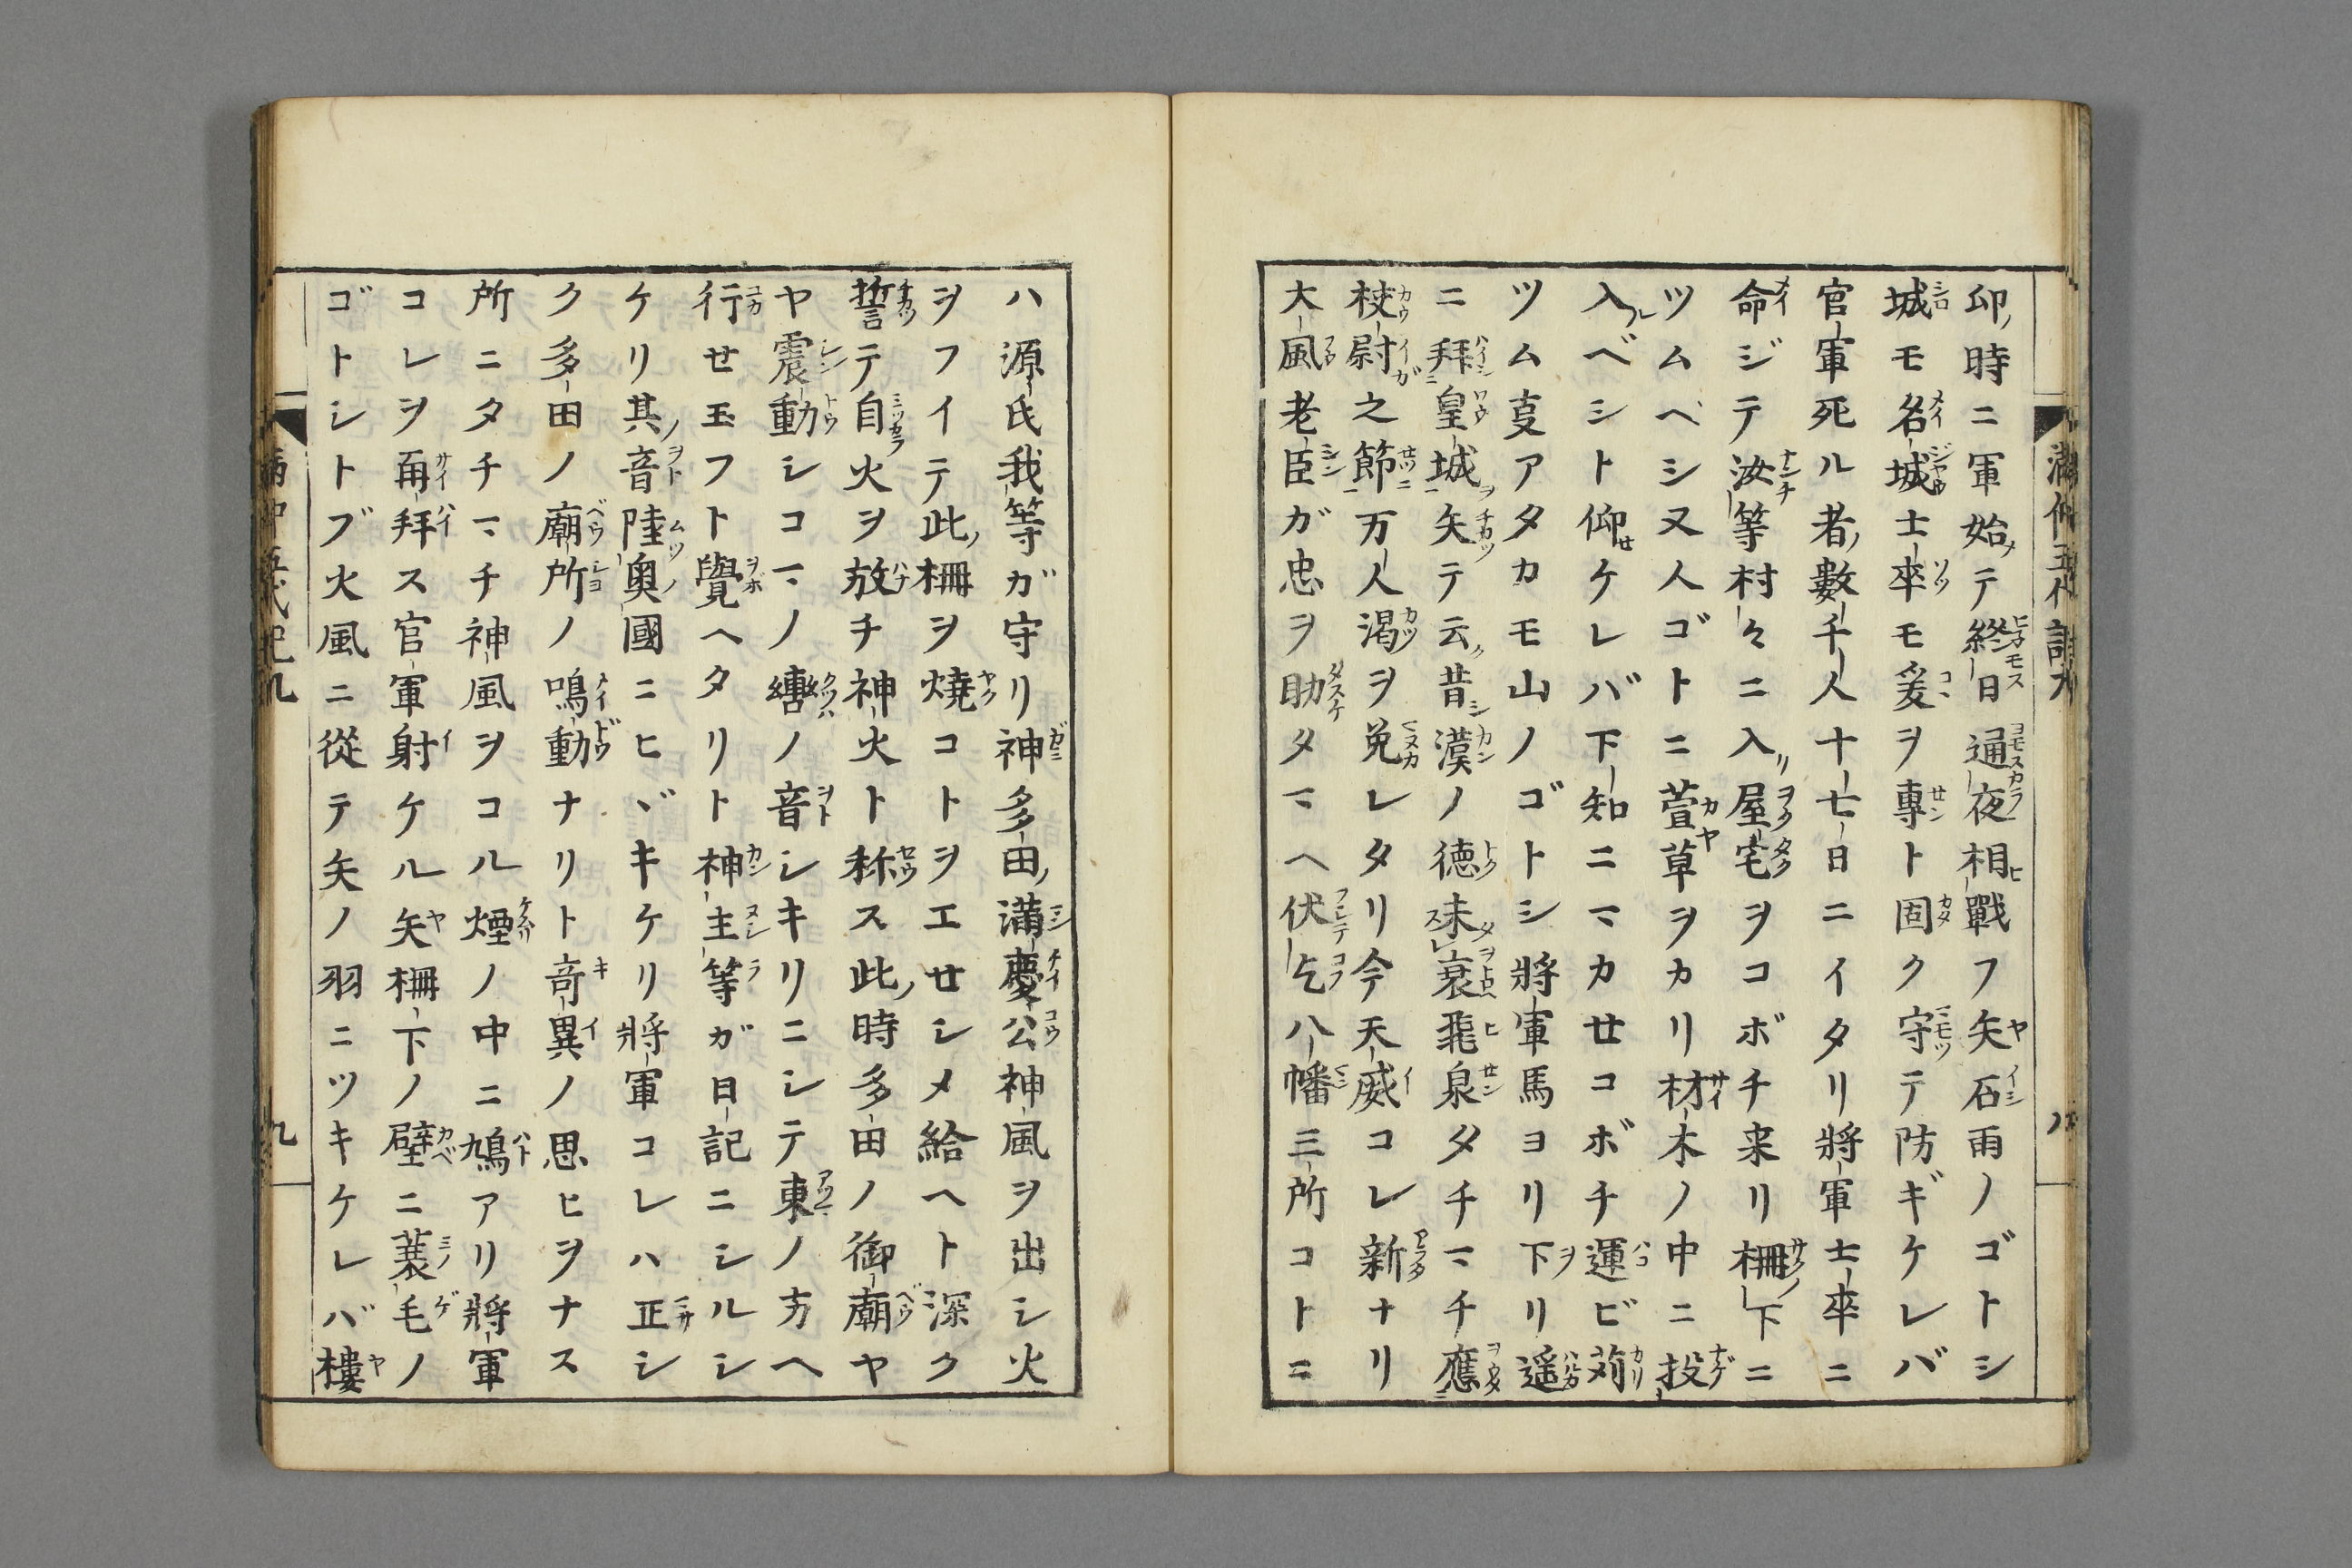 卯ノ時ニ軍始メテ終日通夜相戰フ矢石雨ノゴトシ
城モ名城士卒モ爰ヲ專ト固ク守テ防ギケレバ
官軍死ル者ノ數千人十七日ニイタリ將軍士卒ニ
命ジテ汝等村々ニ入リ屋宅ヲコボチ来リ柵ノ下ニ
ツムベシ又人ゴトニ萱草ヲカリ材木ノ中ニ投
入ルベシト仰セケレバ下知ニマカせコボチ運ビ苅
ツム夏アタカモ山ノゴトシ將軍馬ヨリ下リ遥
ニ拜皇城矢テ云ク昔シ漢ノ徳未衰飛泉タチマチ應
校尉之節万人渇ヲ免レタリ今天威コレ新ナリ
大風老臣ガ忠ヲ助タマヘ伏乞八幡三所コトニ
ハ源氏我等ガ守リ神多田ノ滿慶公神風ヲ出シ火
ヲフイテ此ノ柵ヲ燒コトヲエせシメ給ヘト深ク
誓テ自火ヲ放チ神火ト称ス此ノ時多田ノ御廟ヤ
ヤ震動シコマノ轡ノ音シキリニシテ東ノ方ヘ
行せ玉フト覺ヘタリト神主等ガ日記ニシルシ
ケリ其ノ音陸奥國ニヒヾキケリ將軍コレハ正シ
ク多田ノ廟所ノ鳴動ナリト竒異ノ思ヒヲナス
所ニタチマチ神風ヲコル煙ノ中ニ鳩アリ將軍
コレヲ再拜ス官軍射ケル矢柵下ノ壁ニ蓑毛ノ
ゴトシトブ火風ニ從テ矢ノ羽ニツキケレバ樓
九